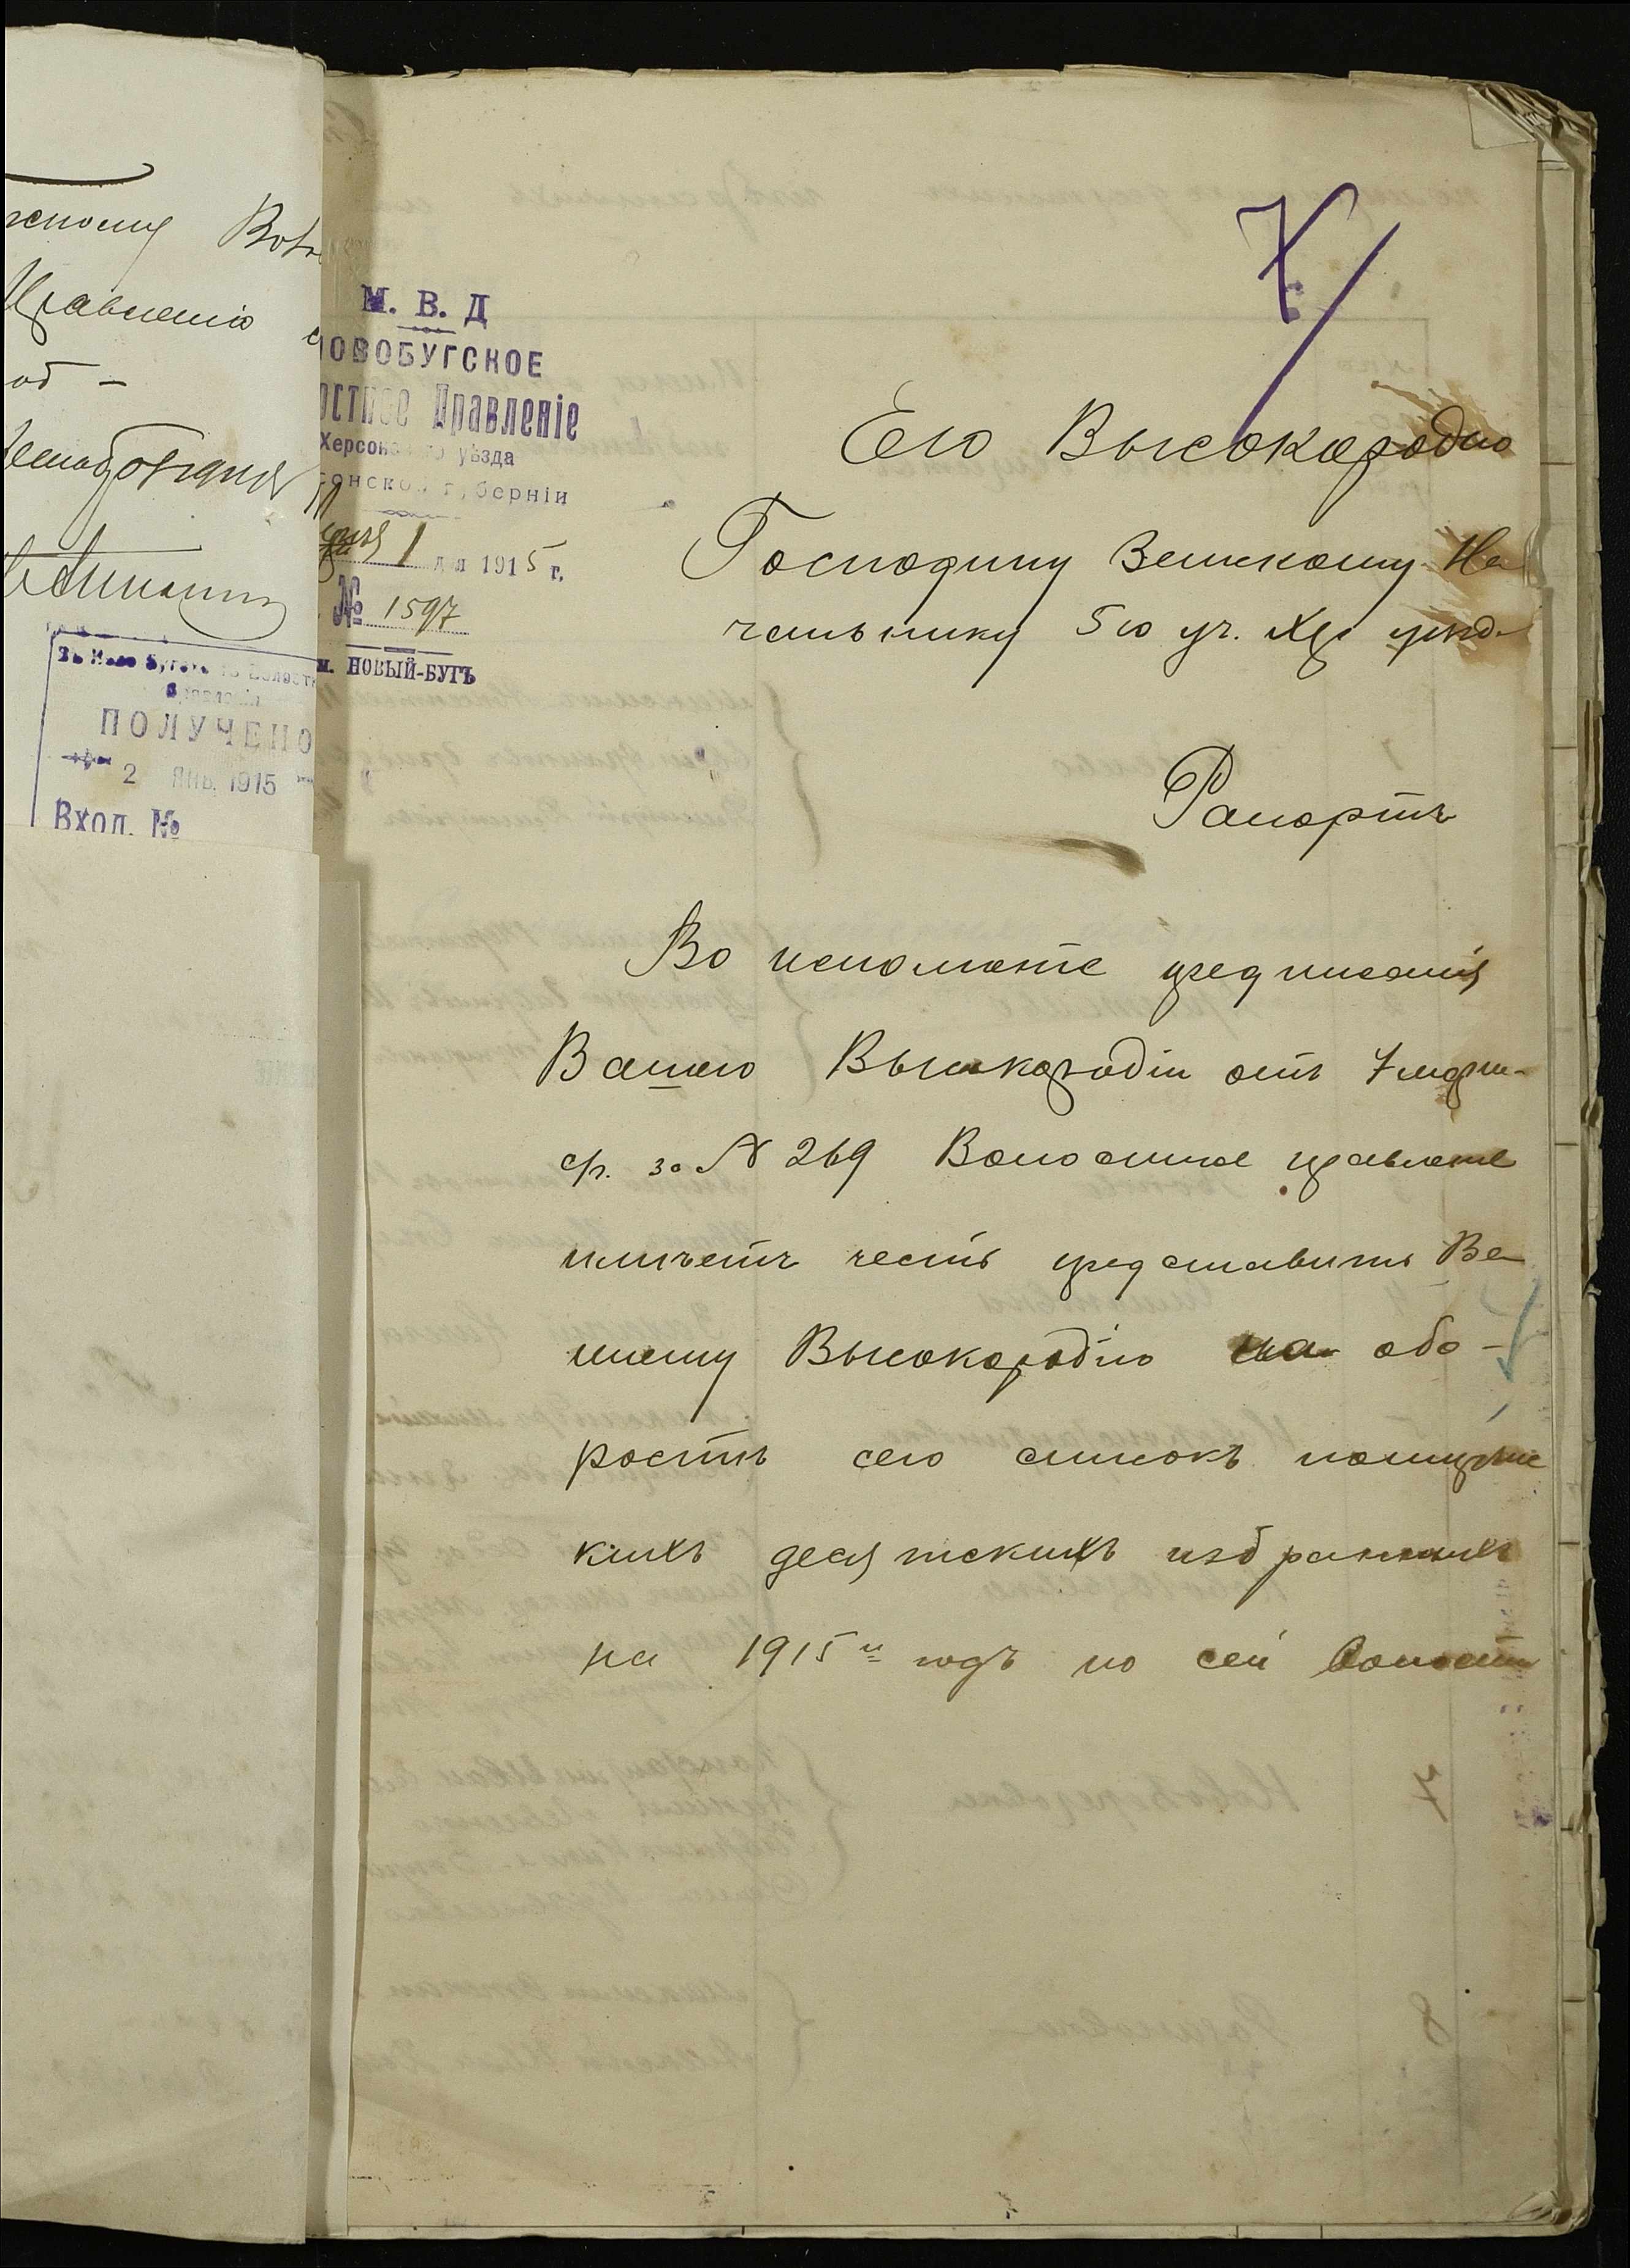 Правленію
М. В. Д
НОВОБУГСКОЕ
Правленіе
Херсонскаго уѣзда
губерніи
1 дня 1915 г.
№ 1597
м. НОВЫЙ-БУГЪ
ПОЛУЧЕНО
2 ЯНВ. 1915
Вход. №
Его Высокородію
Господину Земскому На
чальнику 5 го уч. Хер уѣзд.
Рапортъ
Во исполненіе предписанія
Вашего Высокородія отъ 7 марта
с/г. за № 269 Волостное правленіе
имѣетъ честь представить Ва
шему Высокородію на обо-
ротѣ сего списокъ полицейс
кихъ десятскихъ избранныхъ
на 1915 й годъ по сей волости